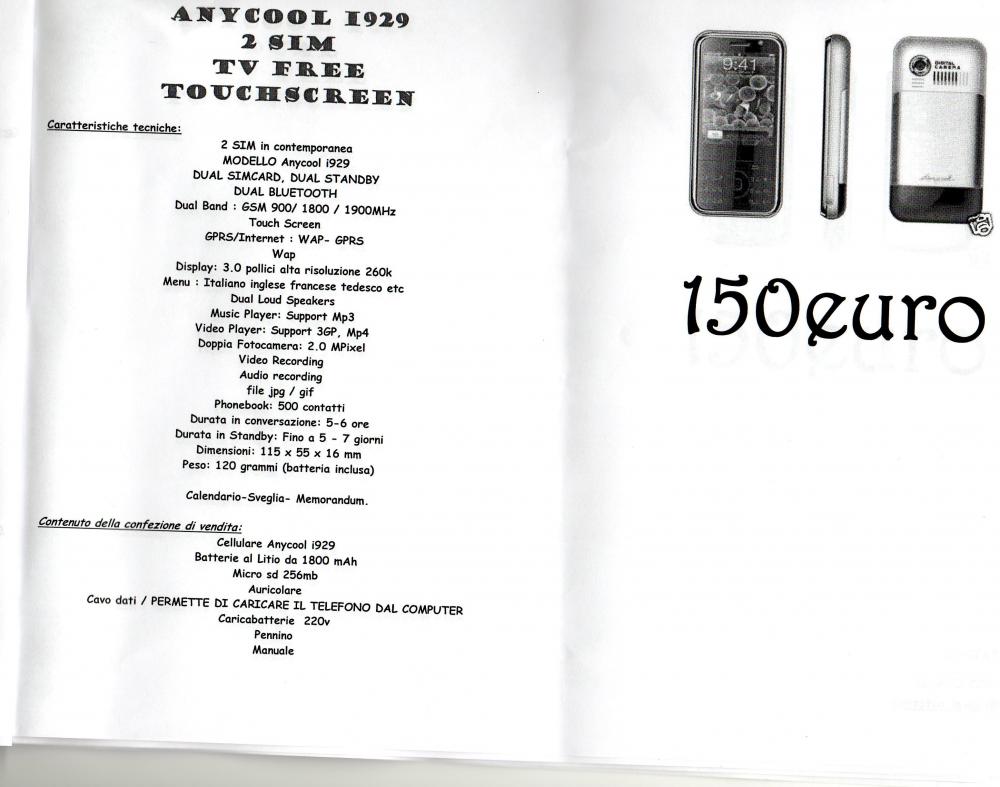 ANYCOOL I929
2 SIM
TV FREE
TOUCHSCREEN
Caratteristiche tecniche:
2 SIM in contemporanea
MODELLO Anycool i929
DUAL SIMCARD, DUAL STANDBY
DUAL BLUETOOTH
Dual Band : GSM 900/ 1800 / 1900MHz
Touch Screen
GPRS/Internet : WAP- GPRS
Wap
Display: 3.0 pollici alta risoluzione 260k
Menu : Italiano inglese francese tedesco etc
Dual Loud Speakers
Music Player: Support Mp3
Video Player: Support 3GP, Mp4
Doppia Fotocamera: 2.0 MPixel
Video Recording
Audio recording
file jpg / gif
Phonebook: 500 contatti
Durata in conversazione: 5-6 ore
Durata in Standby: Fino a 5 - 7 giorni
Dimensioni: 115 x 55 x 16 mm
Peso: 120 grammi (batteria inclusa)
Calendario-Sveglia- Memorandum.
Contenuto della confezione di vendita:
Cellulare Anycool i929
Batterie al Litio da 1800 mAh
Micro sd 256mb
Auricolare
Cavo dati / PERMETTE DI CARICARE IL TELEFONO DAL COMPUTER
Caricabatterie 220v
Pennino
Manuale
9:41
DIGITAL
CAMERA
150euro